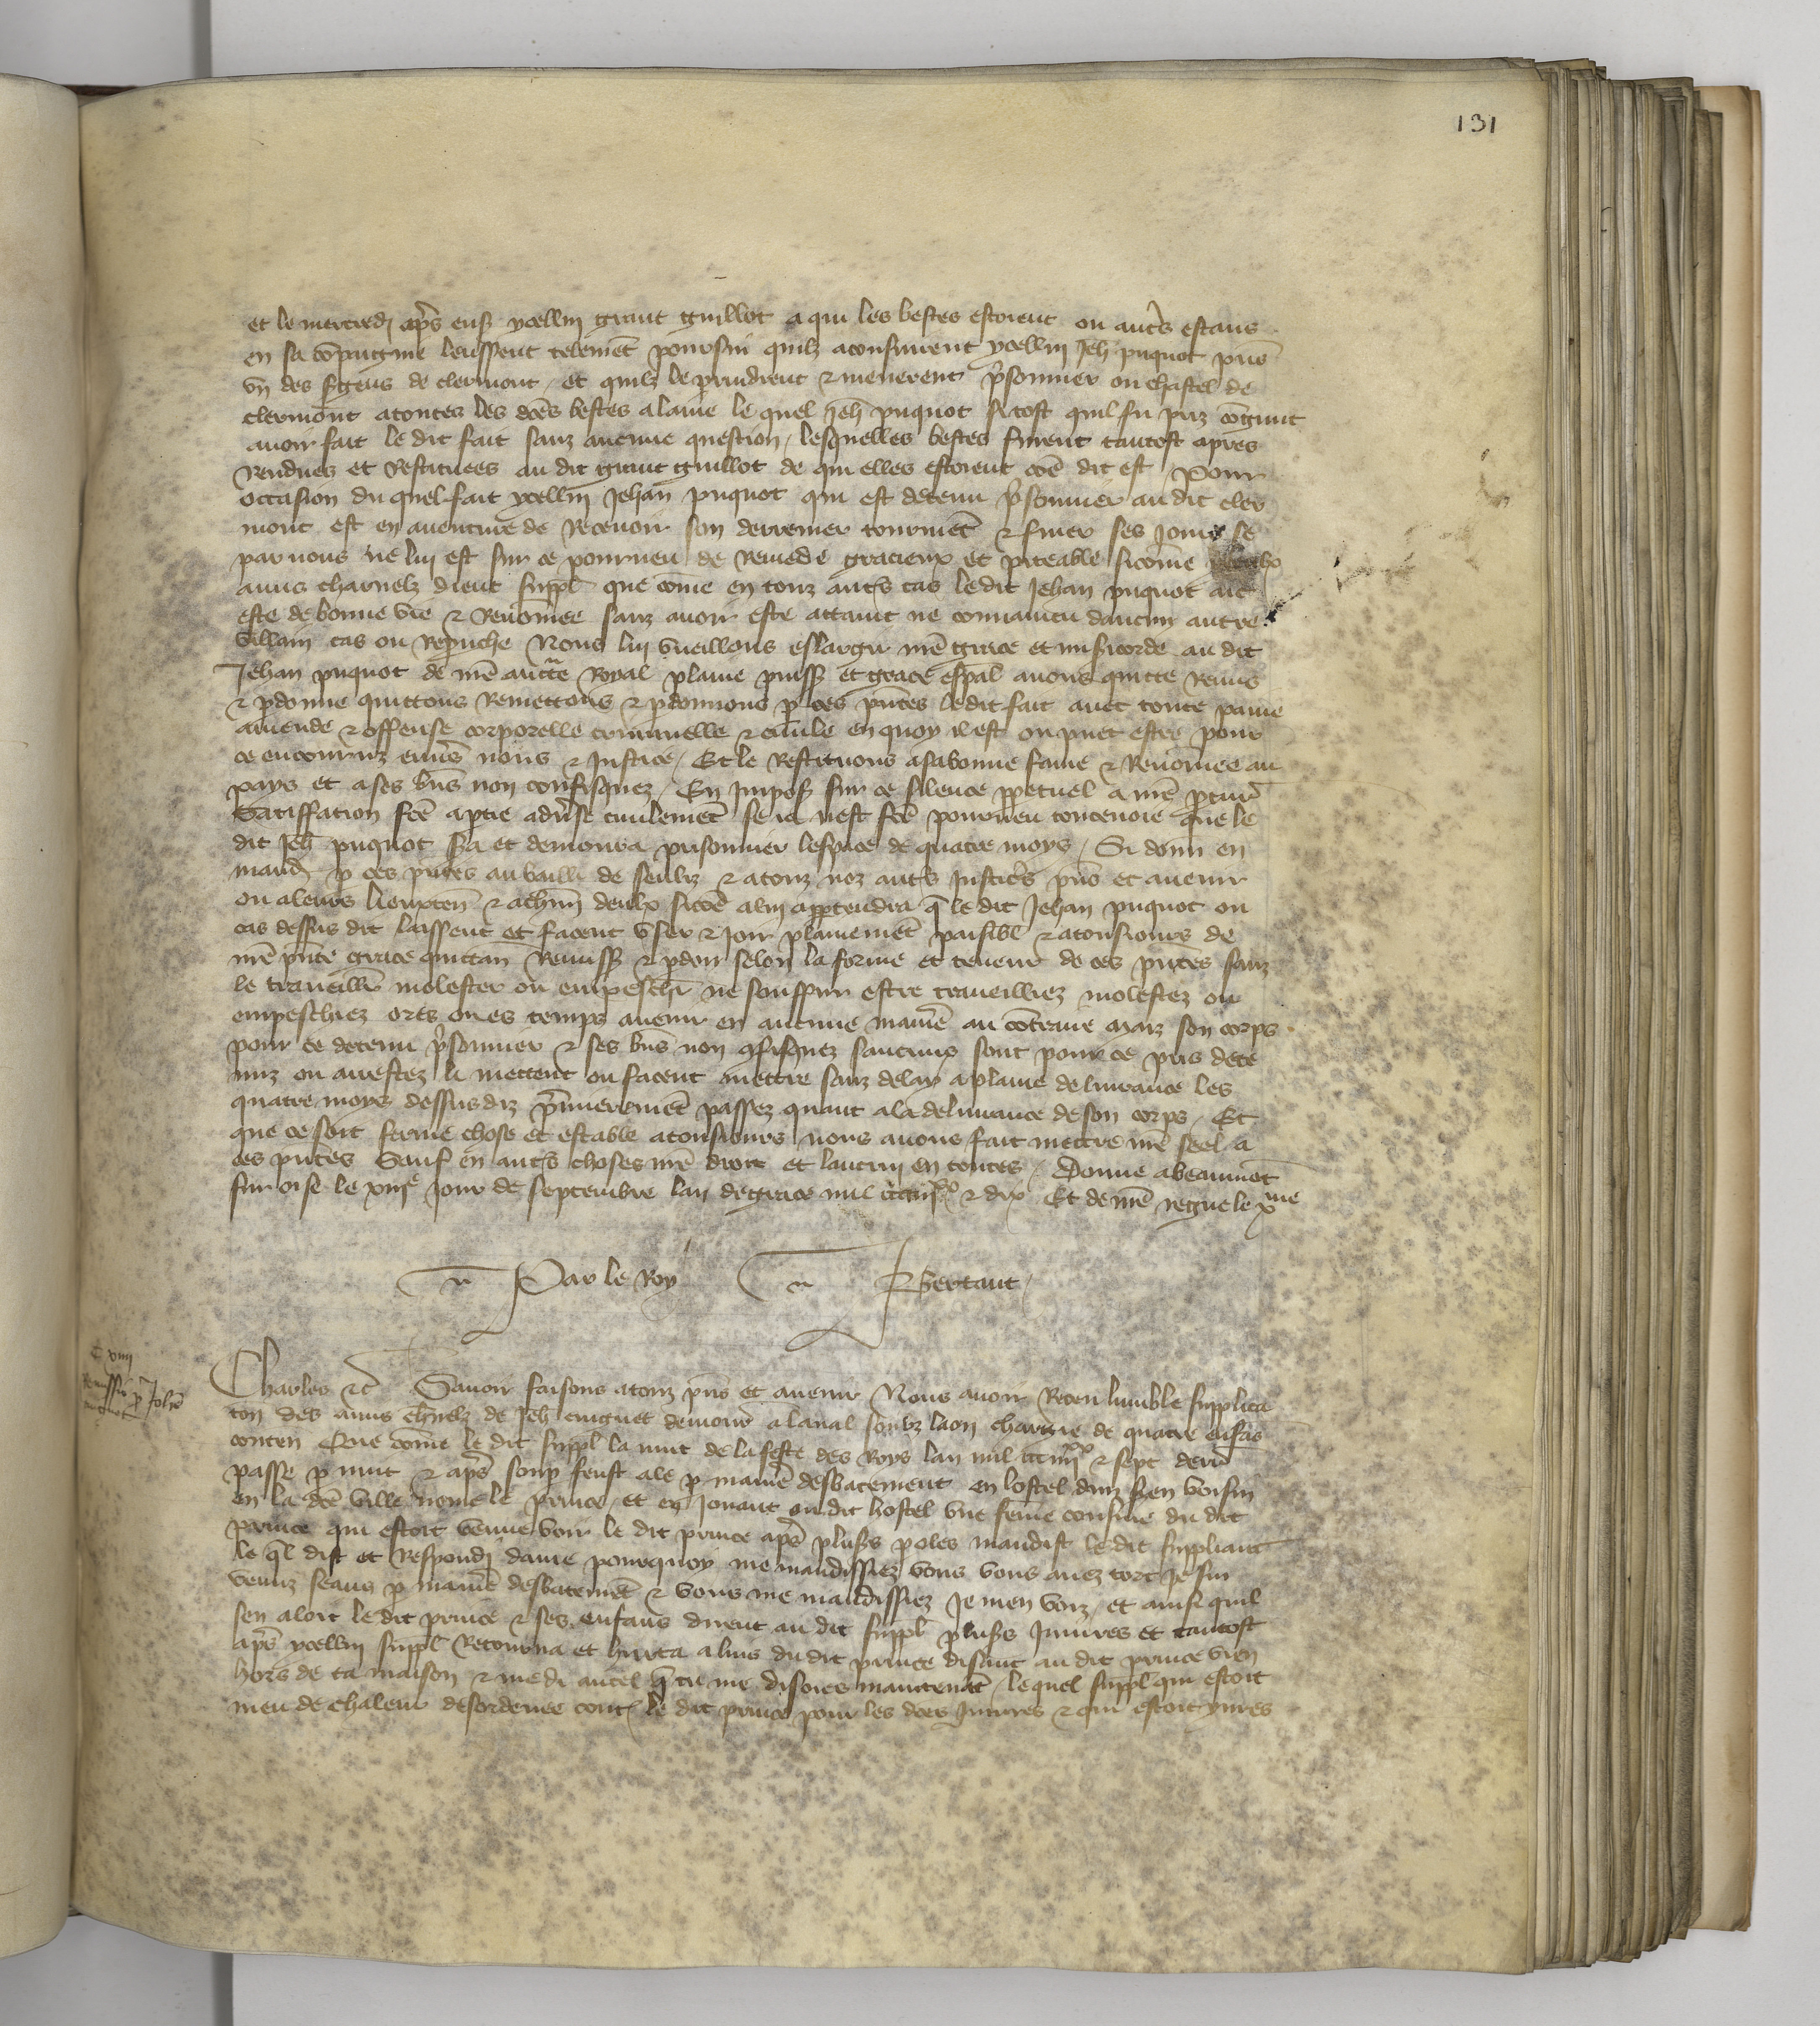 131
et le mercredi apres eust ycellui grant guillot a qui les bestes estoient ou autres estans
en sa compaignie leussent telement poursui quilz aconsuivent ycellui Jeh puquot pres
un des sergens de clermont et quilz le prindrent & menerent prisonnier ou chastel de
clermont atoutes les dces bestes alaine le quel Jeh puquot si tost quil fu priz cognut
avoir fait le dit fait sanz aucune question / lesquelles bestes furent tantost apres
Rendues et Restituees au dit grant guillot de qui elles estoient coe dit est / Pour
occasion du quel fait ycellui Jehan puquot qui est detenu prisonnier au dit cler
mont est en aventure de Recevoir son derrenier tourmet & finer ses jours se
par nous ne lui est sur ce pourveu de Remede gracieux et piteable sicome
amis charnelz dient suppl que come en touz autrs cas le dit Jehan puquot ait
este de bonne vie & Renomee sanz avoir este attaint ne convaincu daucun autre
villain cas ou Repruche Nous lui vueillons eslargir nre grace et misicorde au dit
Jehan puquot de nre aucte Royal plaine puiss et grace espal avons quitte Remis
& pdonne quittons Remettons & pdonnons p ces pntes ledit fait avec toute paine
amende & offense corporelle criminelle & civile en quoy il est ou puet estre pour
ce encouruz envers nous & Justice / Et le Restituons a sa bonne fame & Renomee au
pays et a ses bns non confisquez / En Impos sur ce silence ppetuel a nre pcur
Satisffation fce aptie adverse civilement se ia nest fce pourveu toutevoie que le
dit Jeh puquot sera et demoura prisonnier lespace de quatre moys / Si donn en
mand p ces pntes au bailli de senliz & a touz noz autrs Justiciers pns et avenir
ou aleurs lieuxten & achun deulx sicoe a lui appartendra q le dit Jehan puquot ou
cas dessus dit laissent et facent user & Joir plainement paisibl & a tousiours de
nre pnte grace quittan Remiss & pdon selon la forme et teneur de ces pntes sanz
le traveillr molester ou empeschr ne souffrir estre traveilliez molestez ou
empeschiez ores ou es temps avenir en aucune manie au contraire Maiz son corps
pour ce detenu prisonnier & ses bns non cfisquez saucuns sont pour ce pris dete
nuz ou arrestez li mettent ou facent mettre sanz delay a plaine delivrance les
quatre moys dessusdiz premierement passez quant a la delivrance de son corps / Et
que ce soit ferme chose et estable a tousiours nous avons fait mettre nre seel a
ces pntes Sauf en autrs choses nre droit et lautrui en toutes / Donne a beaumot
sur oise le xiije jour de septembre lan de grace mil ccc iiijxx & dix Et de nre regne le xme
Par le Roy Bertaut
Charles &c Savoir faisons atouz pns et avenir Nous avoir Receu lumble supplica
Remissio p Johe
ton des amis chnelz de Jeh cuignet demour a laval soubz laon chargie de quatre enfas
conten Que come le dit suppl la nuit de la feste des Roys lan mil ccc iiijxx & sept derr
passe p nuit & aps soup feust ale p manie desbatement en lostel dun sien voisin
en la dce ville nome le prince / et en jouant ou dit hostel une feme cousine du dit
prince qui estoit venue voir le dit prince aps pluss poles maudist le dit suppliant
le ql dist et Respondi dame pourquoy me maudissiez vous vous avez tort Je sui
venuz seans p manie desbatemet & vous me maudissiez Je men voiz / et ainsi quil
sen aloit le dit prince & ses enfans dirent au dit suppl pluss Injures et tantost
aps ycellui suppl Retourna et hurta a luis du dit prince disant au dit prince vien
hors de ta maison & me di autel q tu me disoies maintenat / lequel suppl qui estoit
meu de chaleur desordenee cont le dit prince pour les dces Injures & qui estoit yvres